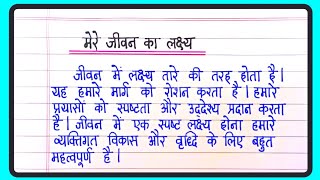 मेरे जीवन का लक्ष्य
जीवन में लक्ष्य तारे की तरह होता है।
यह हमारे मार्ग को रोशन करता है। हमारे
प्रयासों को स्पष्टता और उद्देश्य प्रदान करता
है। जीवन में एक स्पष्ट लक्ष्य होना हमारे
व्यक्तिगत विकास और वृध्दि के लिए बहुत
महत्वपूर्ण है।